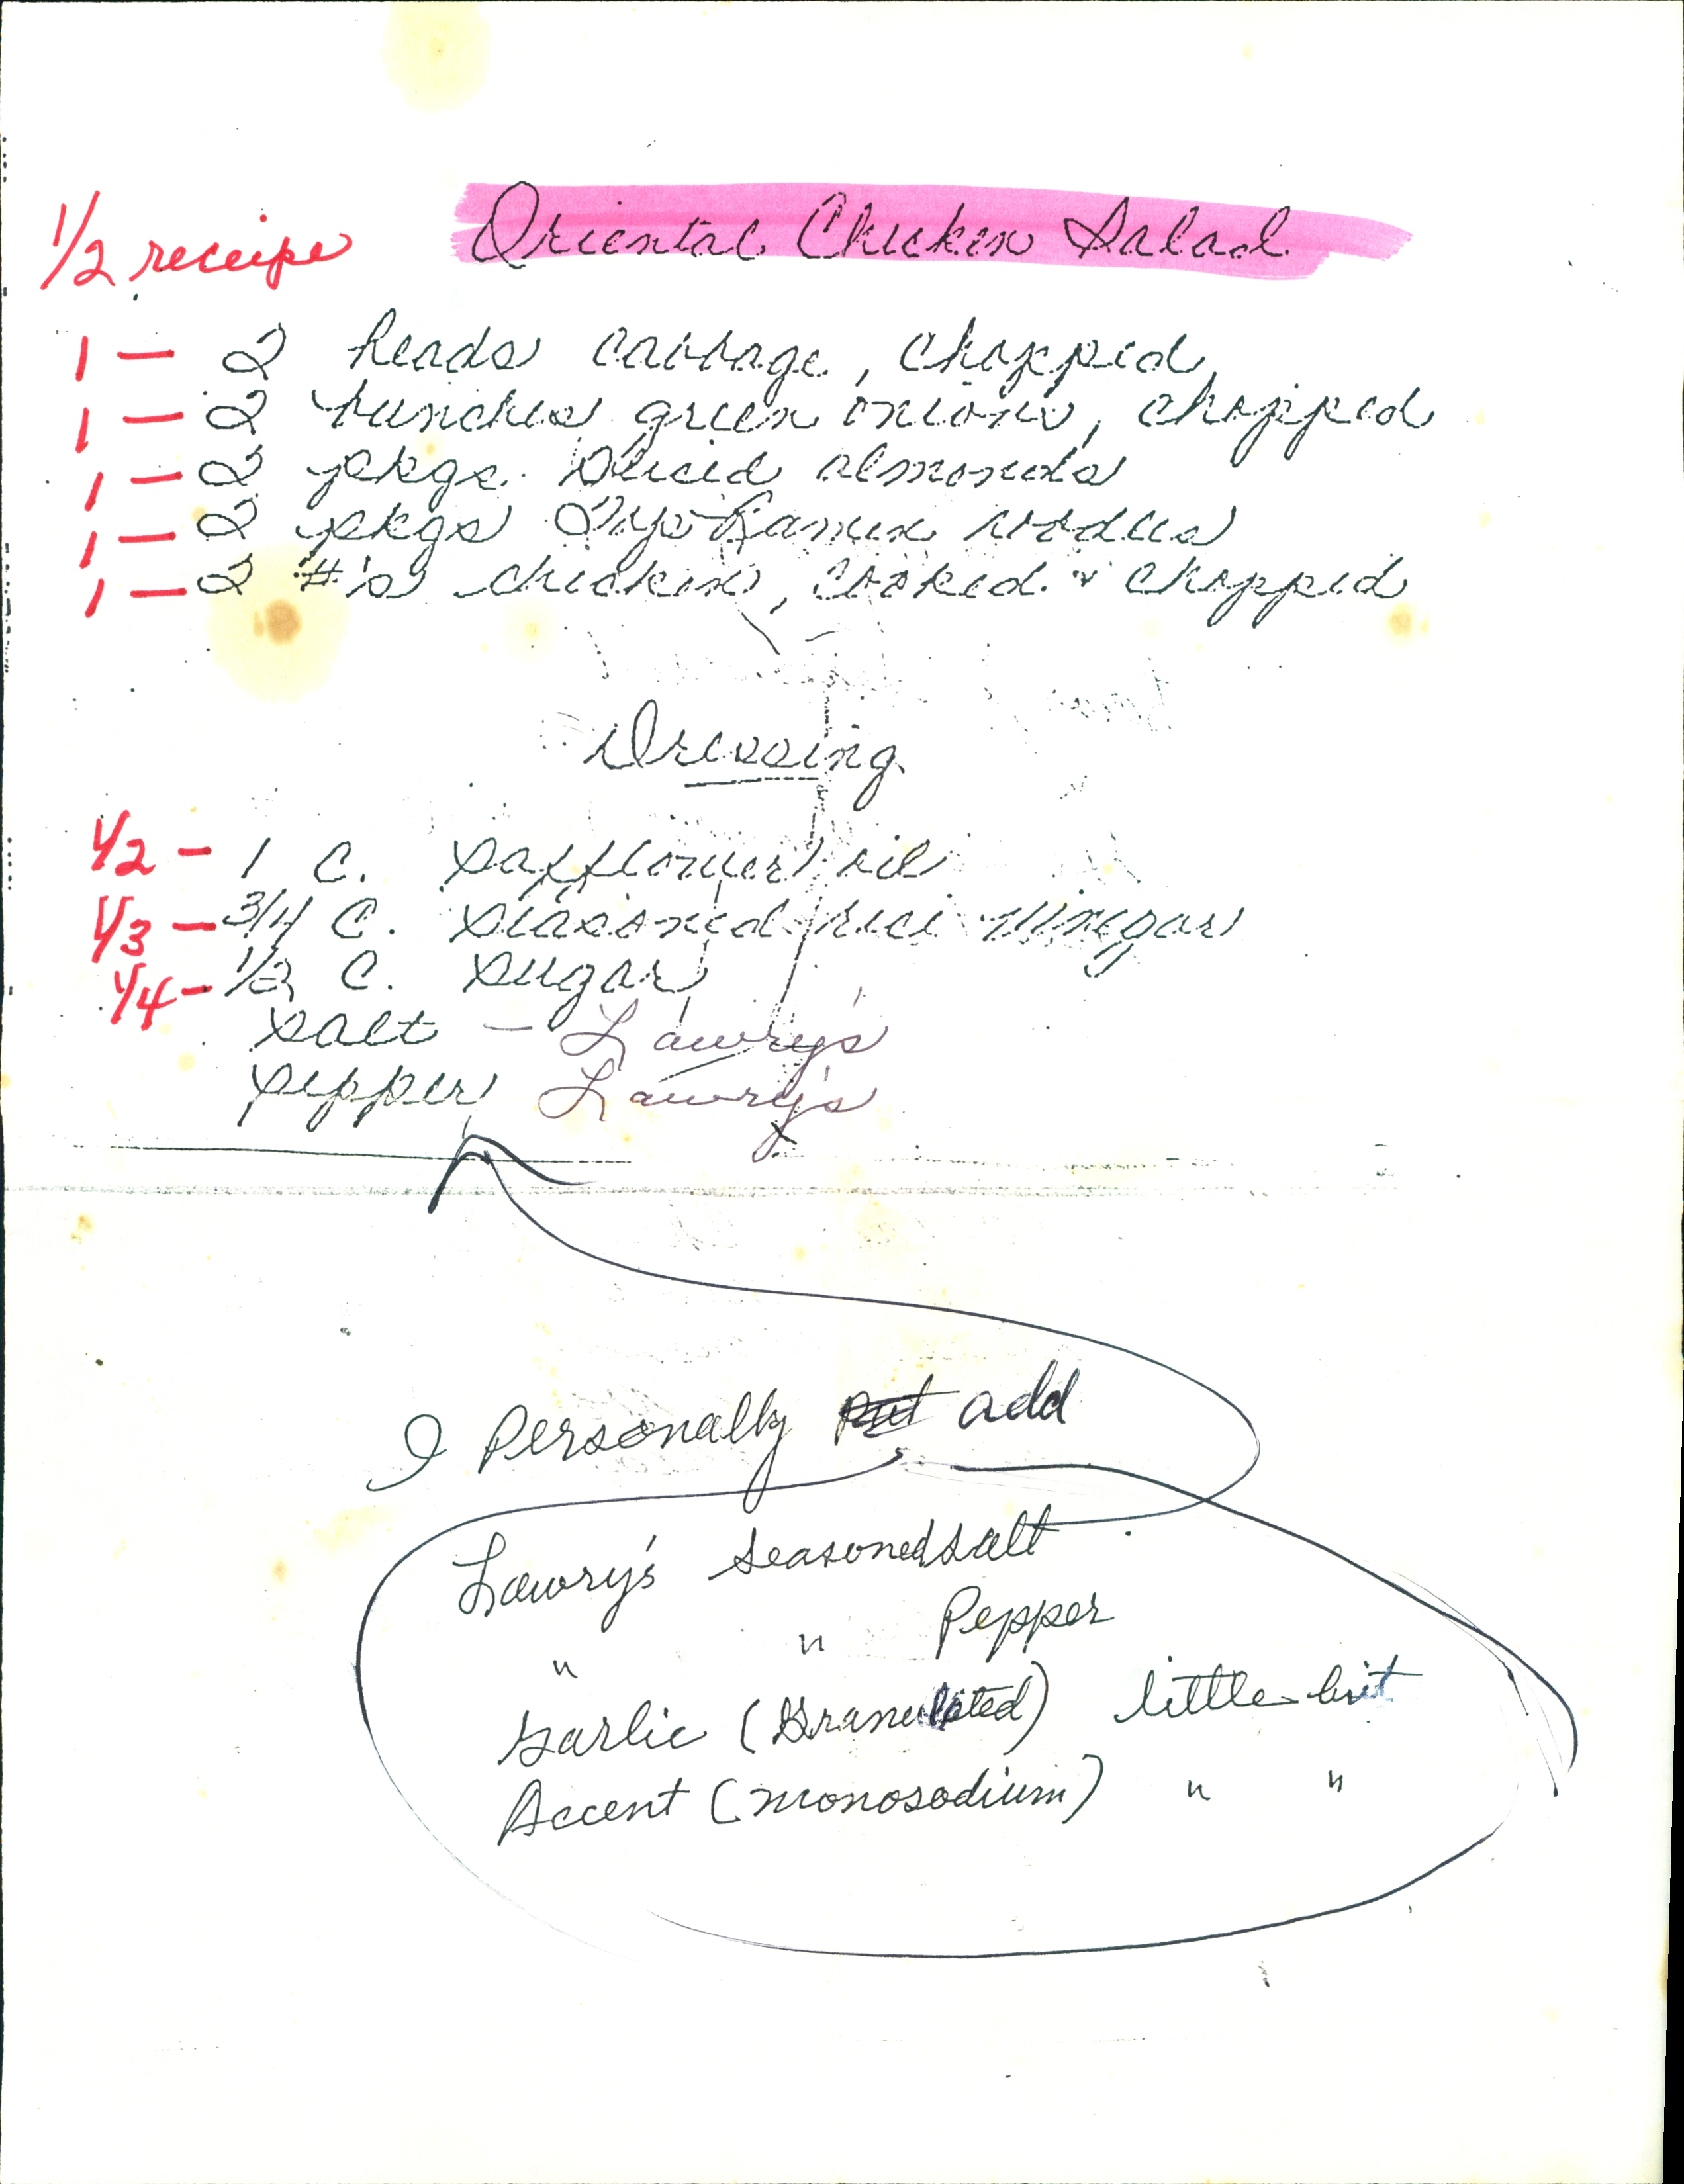 1/2 receipe Oriental Chicken Salad
1 — 2 heads cabbage, chopped
1 — 2 bunches green onions, chopped
1 — 2 pkgs. sliced almonds
1 — 2 pkgs Top Ramen noodles
1 — 2 #'s chicken, cooked & chopped
Dressing
1/2 - 1 C. safflower oil
1/3 - 3/4 C. seasoned rice vinegar
1/4 - 1/2 C. sugar
salt — Lawry's
pepper Lawry's
I Personally put add
Lawry's seasoned salt
" " Pepper
Garlic (Granulated) little bit
Accent (monosodium) " "